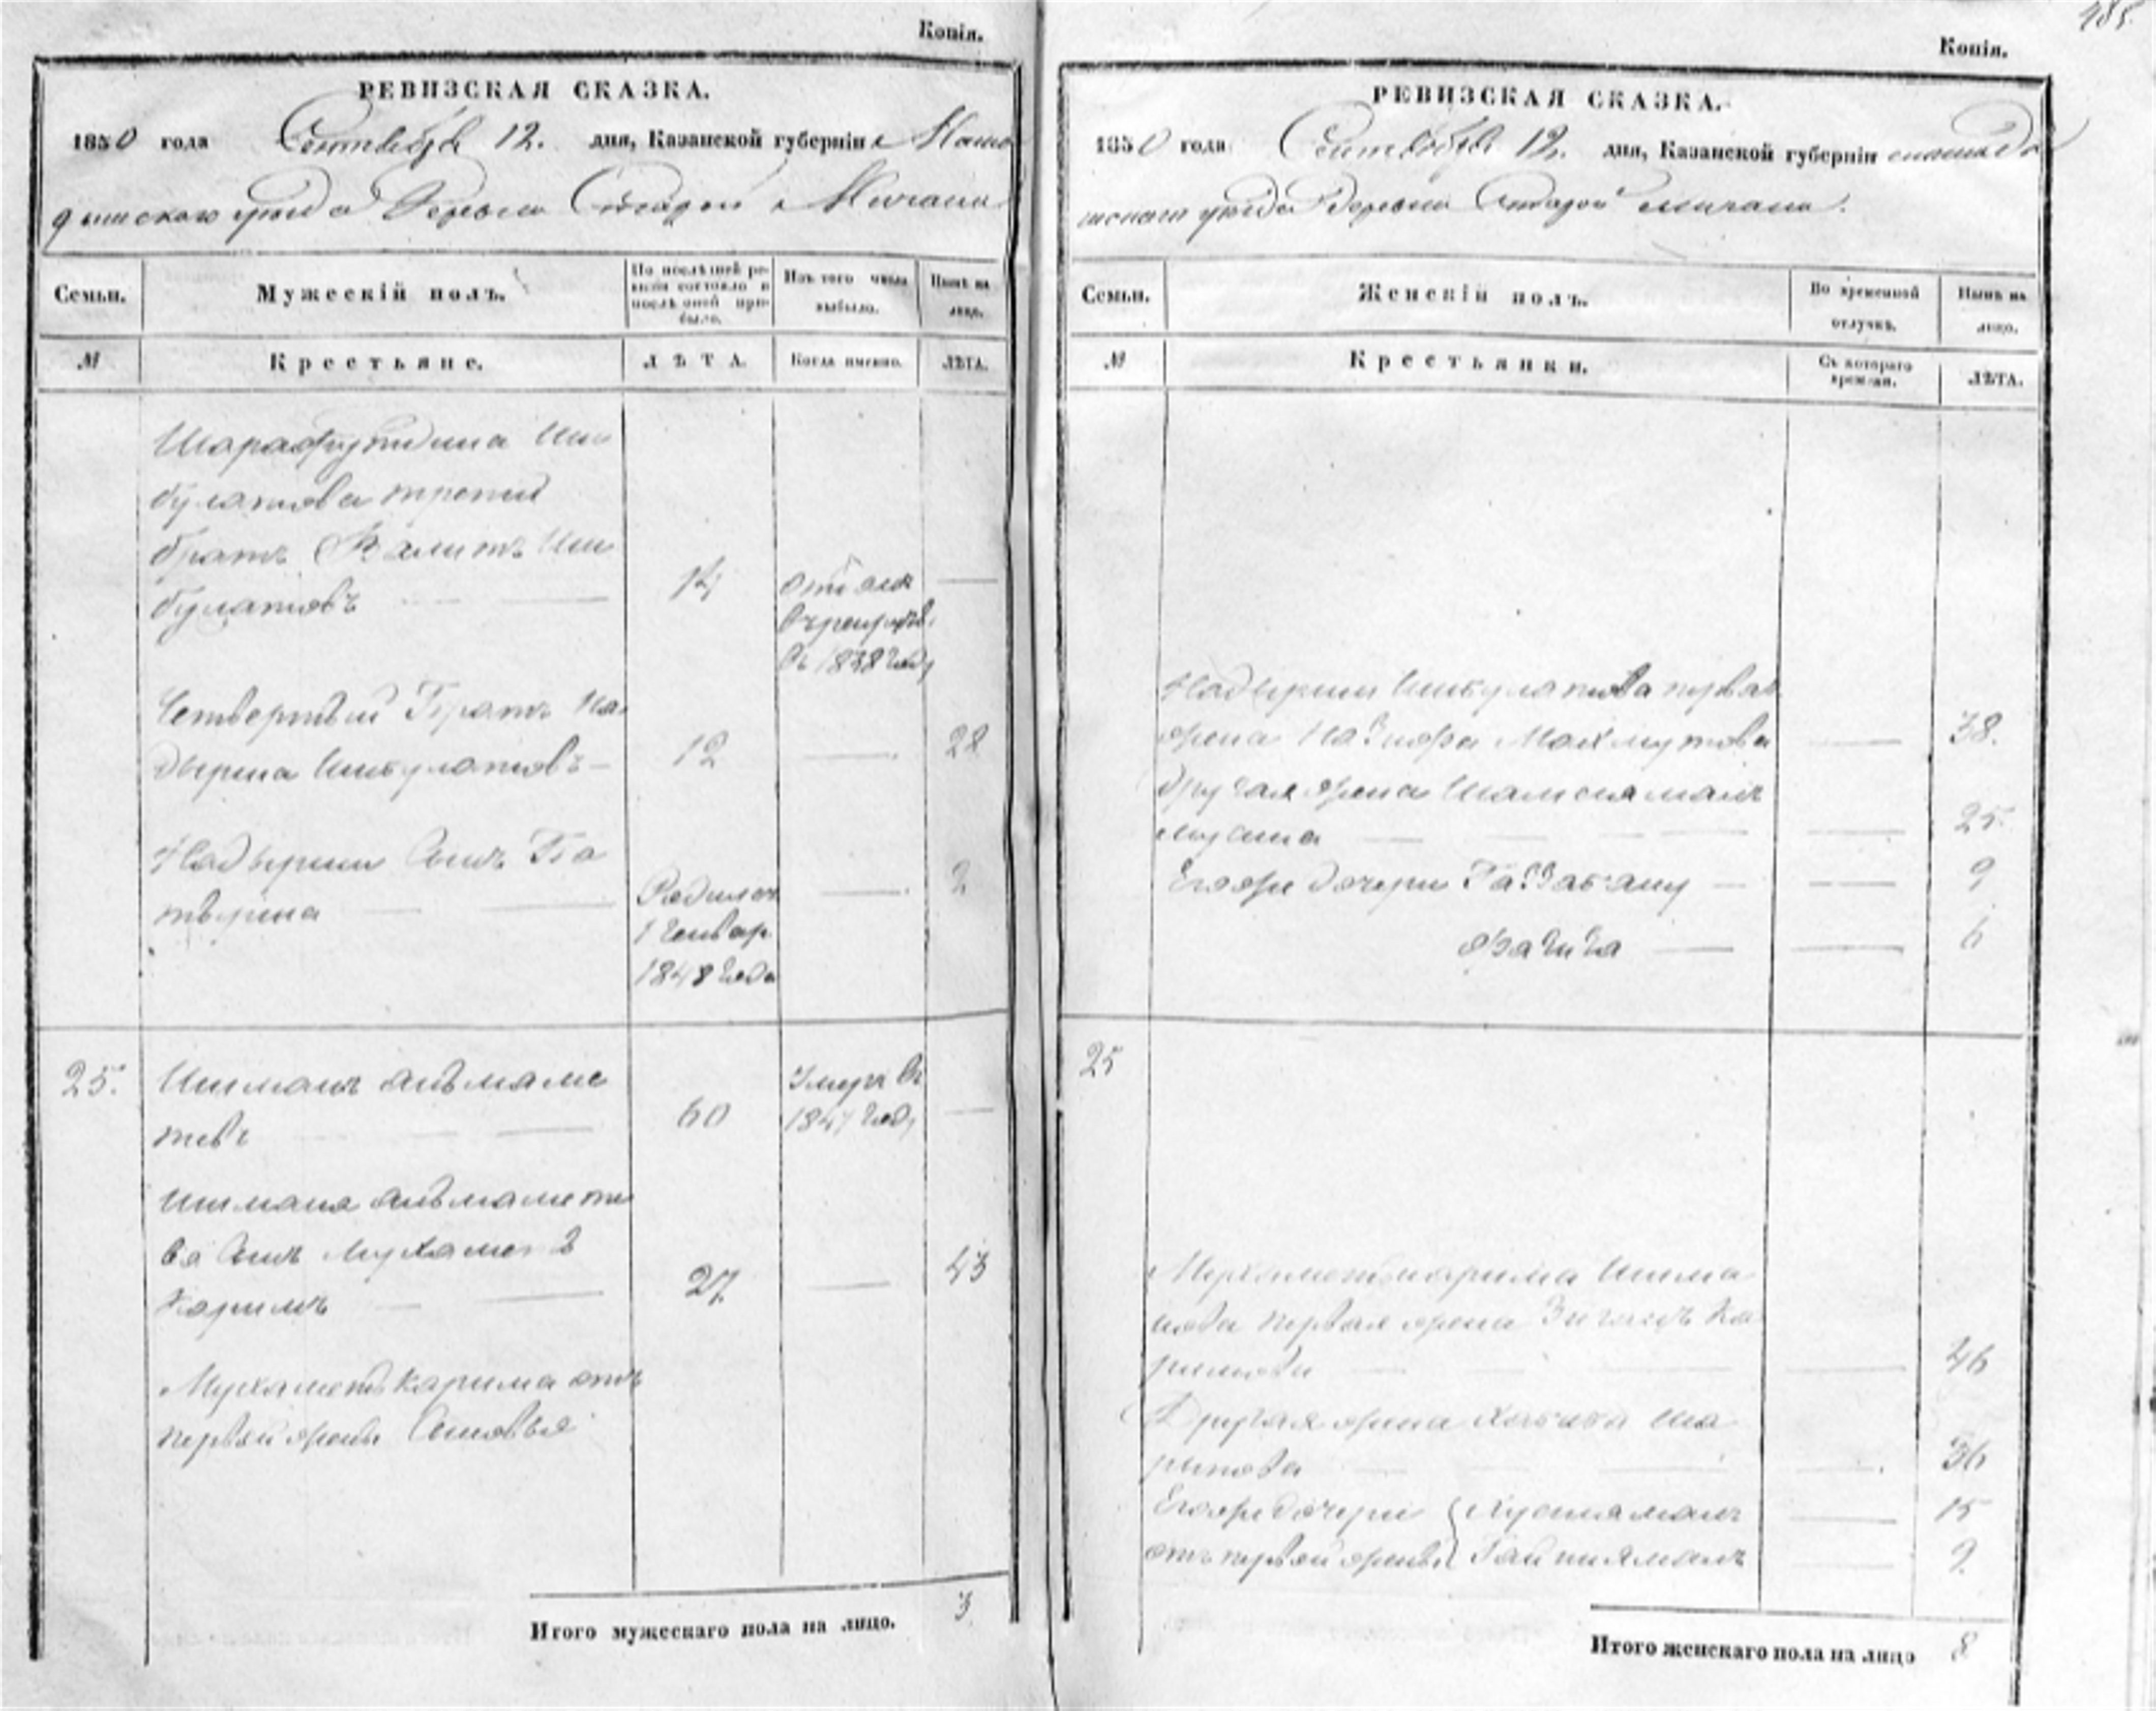 Копія.
РЕВИЗСКАЯ СКАЗКА.
1850 года Сентября 12. дня, Казанской губерніи Мама
дышскаго уѣзда Деревни Старой Мичани
Семьи. Мужескій полъ. По послѣдней ре- визіи состояло и послѣ оной при- было. Изъ того числа выбыло. Нынѣ на лицо.
№ Крестьяне. ЛѢТА. Когда именно. ЛѢТА.
Шарафутдина Иш
булатова третій
братъ Валитъ Иш
булатовъ 14 отдан
в рекруты
въ 1838 году
Четвертый Братъ На
дырша Ишбулатовъ 12 28
Надырши Сынъ Ба
тырша Родился
1 Генвар
1848 года 2
25. Ишманъ Аитмаме
тевъ 60 Умеръ въ
1847 году
Ишмана Аитмамете
ва Сынъ Мухамет
Каримъ 27 43
Мухаметкарима отъ
первой жены Сыновья
Итого мужескаго пола на лицо. 3
185.
Копія.
РЕВИЗСКАЯ СКАЗКА.
1850 года Сентября 12. дня, Казанской губерніи мамады
шскаго уѣзда Деревни Старой мичани.
Семьи. Женскій полъ. Во временной отлучкѣ. Нынѣ на лицо.
№ Крестьянки. Съ котораго времени. ЛѢТА.
Надырши Ишбулатова первая
жена Махмутова 38.
другая жена Шамсиямалъ
мусина 25
Его же дочери 9
Фагига 6
25
Мухаметкарима Ишма
нова первая жена Ка
римова 46
Другая жена Хабиба Ша
рипова 36
Его же дочери Хуснямалъ 15
отъ первой жены Гайниямалъ 9
Итого женскаго пола на лицо 8